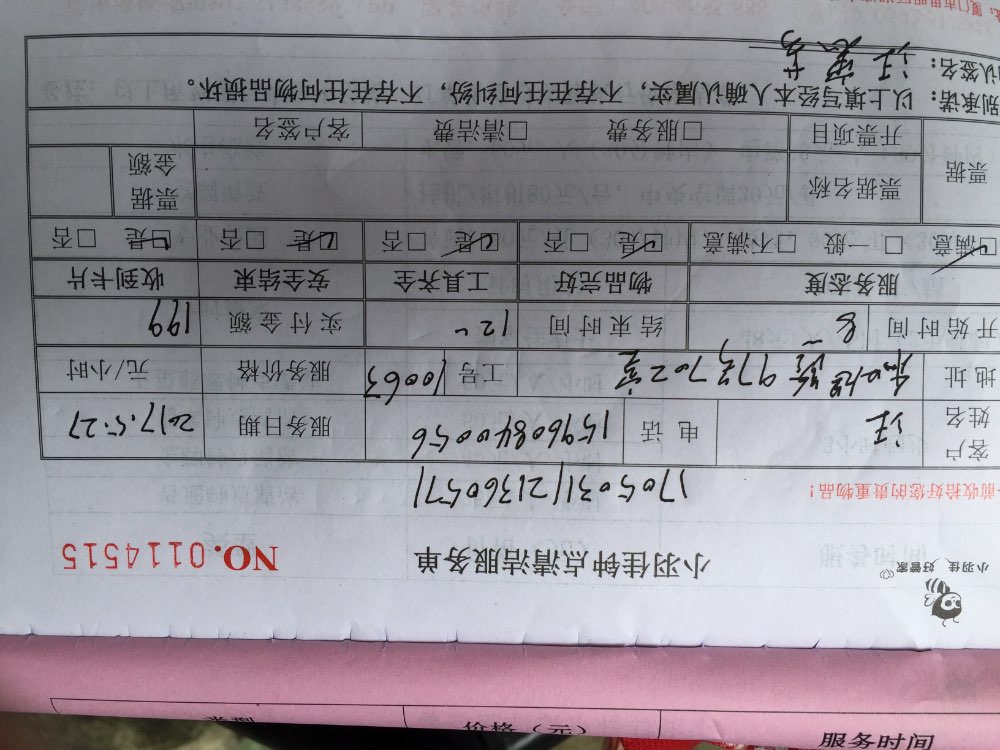 小羽佳 好管家
小羽佳钟点清洁服务单 NO.0114515
前收拾好您的贵重物品！ 1705031121360571
客户姓名 汪 电话 15960840056 服务日期 2017.5.27
地址 97号702室 工号 10063 服务价格 元/小时
开始时间 8 结束时间 12 实付金额 199
服务态度 物品完好 工具齐全 安全结束 收到卡片
满意 □一般 □不满意 □是 □否 □是 □否 □是 □否 □是 □否
票据 票据名称 票据金额
开票项目 □服务费 □清洁费 客户签名
别承诺：以上填写经本人确认属实，不存在任何纠纷，不存在任何物品损坏。
认签名： 汪
类型 价格（元） 服务时间